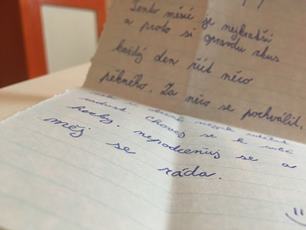 Tento měsíc je nejkratší
a proto si opravdu zkus
každý den říct něco
pěkného. Za něco se pochválit.
Chovej se k sobě
hezky, nepodceňuj se a
měj se ráda.